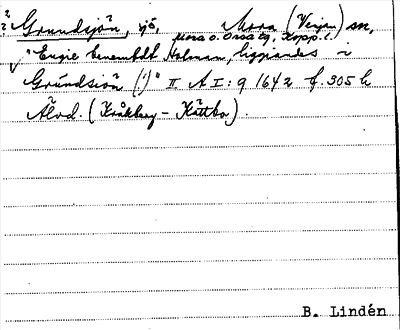 ? Grundsjön, sjö, Mora (Venjan) sn,
Mora o. Orsa tg, Kopp. l.
√ "Engie benembdt Holman, liggiandes i
Grúndsiön (!)" II A I: 9 1642 f. 305 b
Älvd. (Kråkberg - Kättbo).
B. Lindén